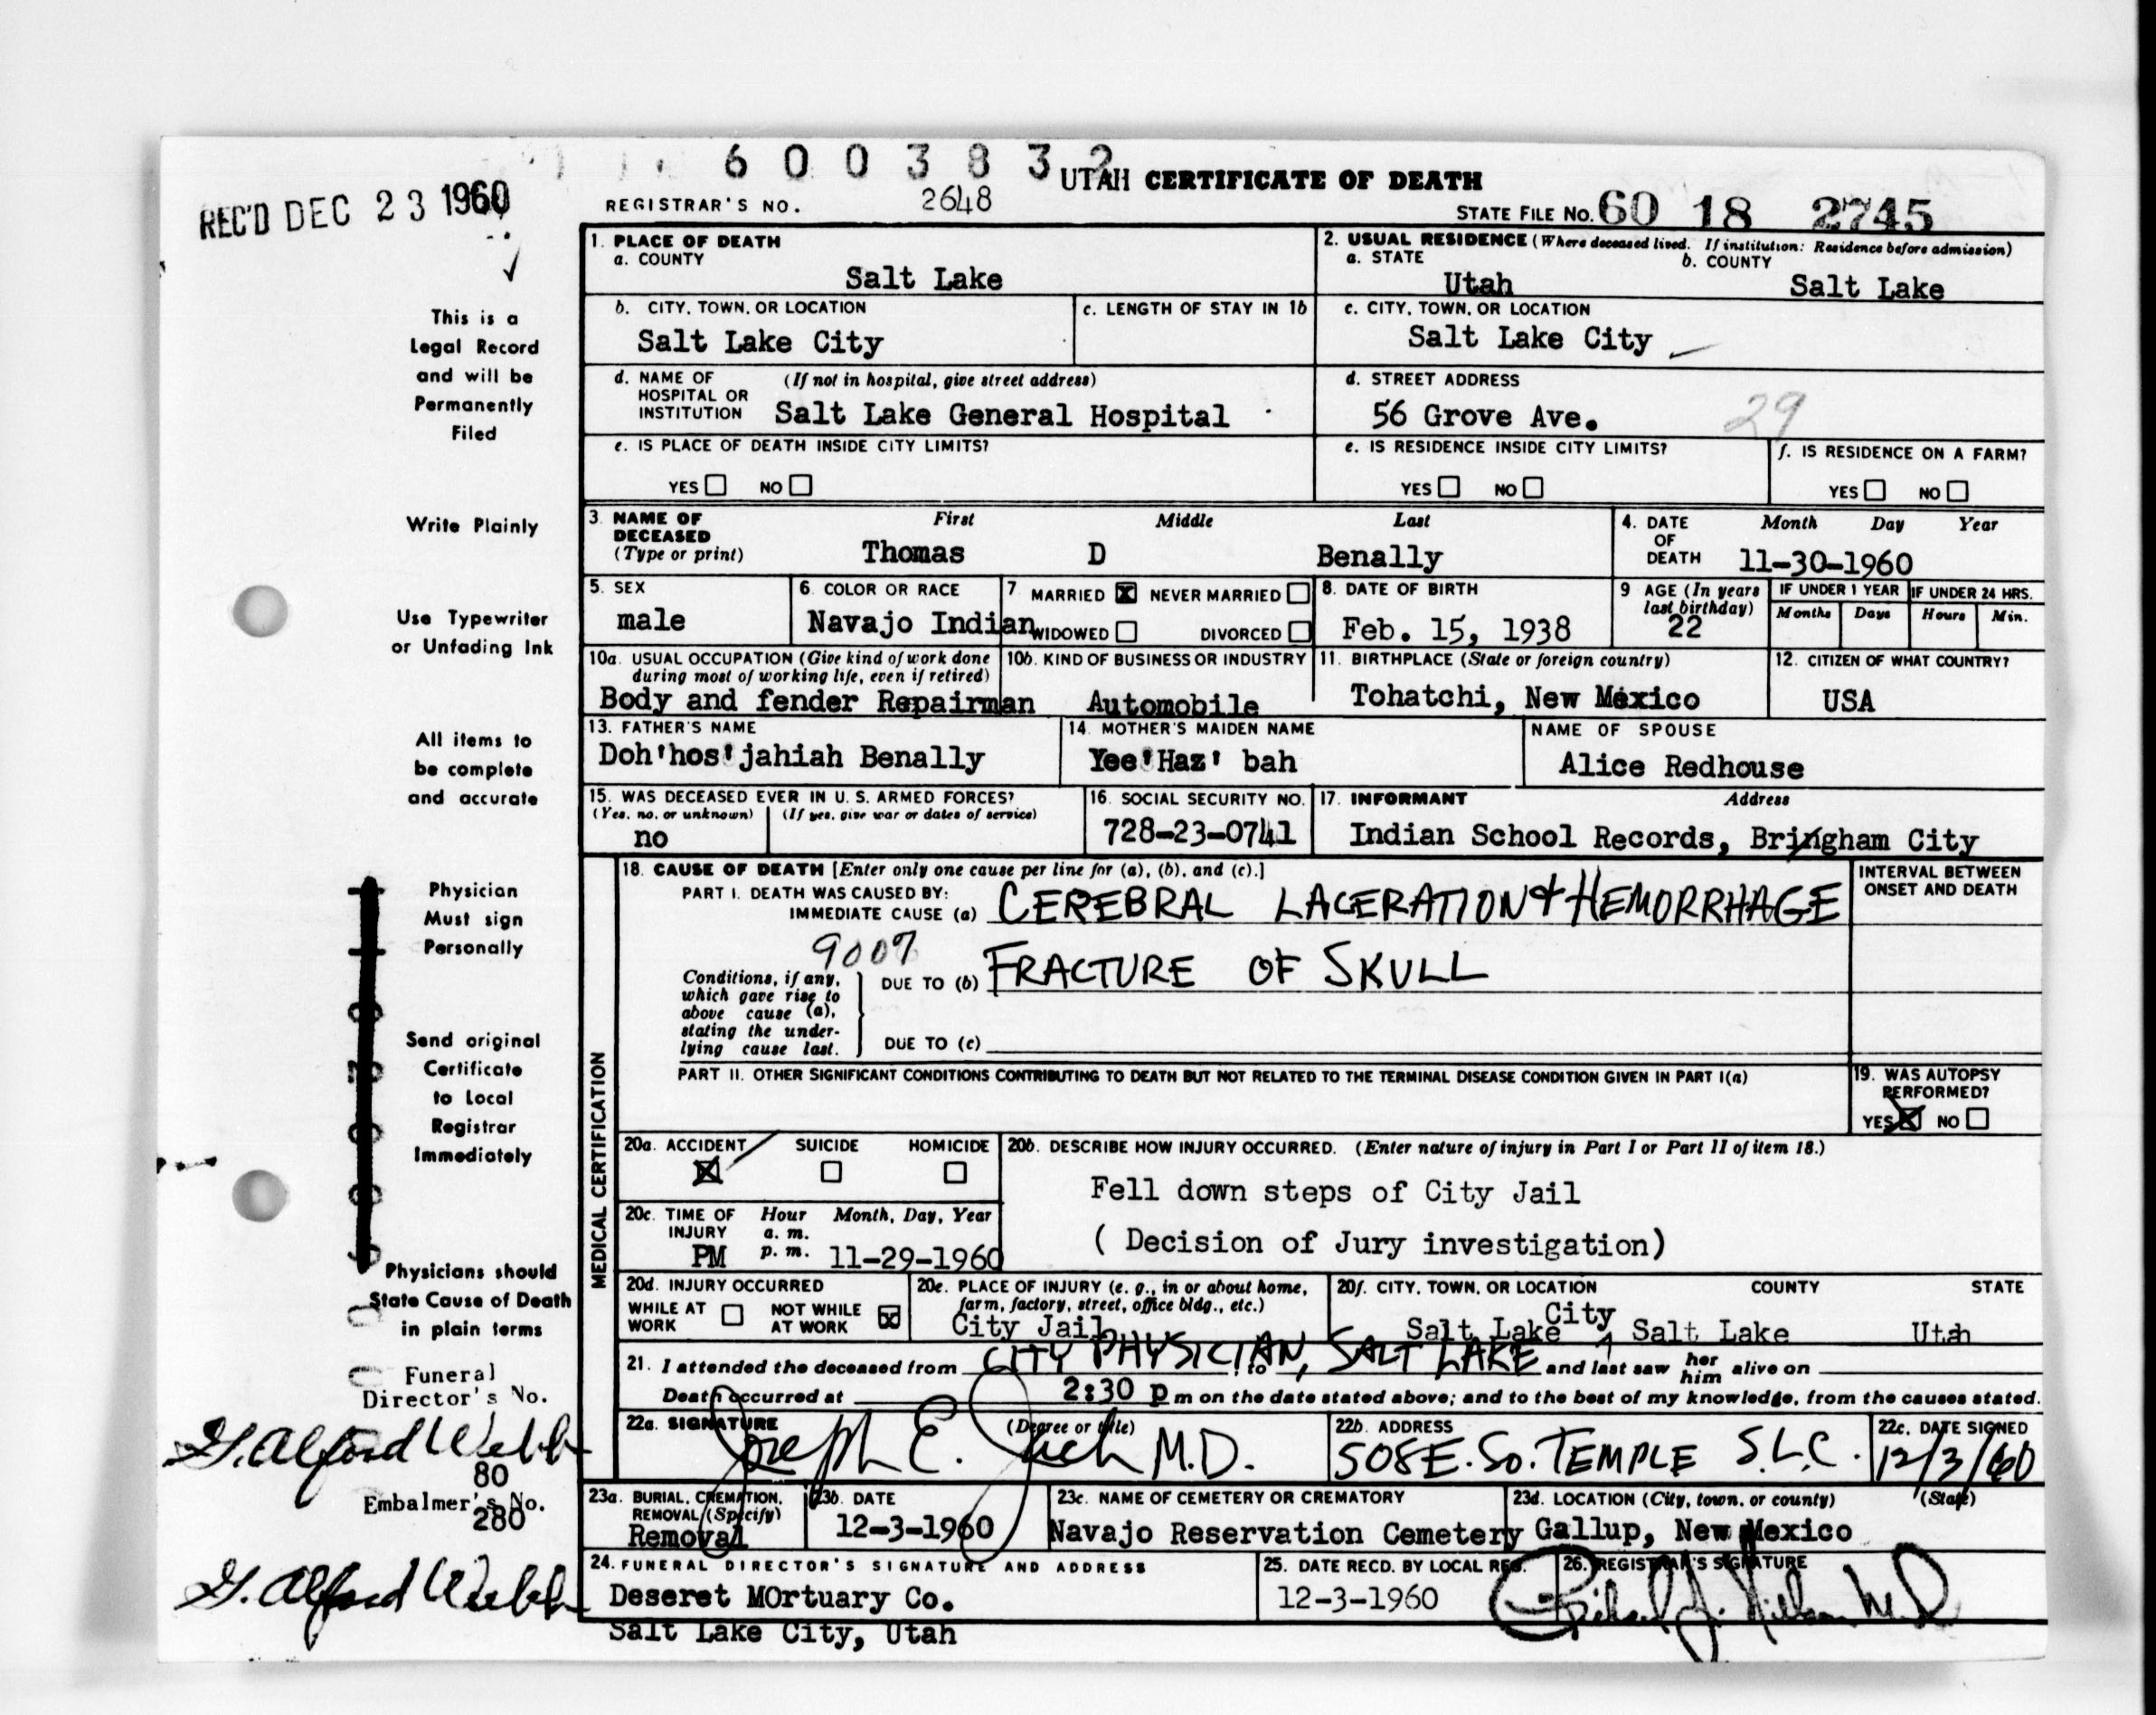 6003832
REC'D DEC 23 1960
UTAH CERTIFICATE OF DEATH
REGISTRAR'S NO. 2648
STATE FILE NO. 60 18 2745
This is a
Legal Record
and will be
Permanently
Filed
Write Plainly
Use Typewriter
or Unfading Ink
All items to
be complete
and accurate
Physician
Must sign
Personally
Send original
Certificate
to Local
Registrar
Immediately
Physicians should
State Cause of Death
in plain terms
Funeral
Director's No.
G. Alford Webb
80
Embalmer's No.
280
G. Alford Webb
1. PLACE OF DEATH
a. COUNTY
Salt Lake
2. USUAL RESIDENCE (Where deceased lived. If institution: Residence before admission)
a. STATE
Utah
b. COUNTY
Salt Lake
b. CITY, TOWN, OR LOCATION
Salt Lake City
c. LENGTH OF STAY IN 1b
c. CITY, TOWN, OR LOCATION
Salt Lake City
d. NAME OF HOSPITAL OR INSTITUTION (If not in hospital, give street address)
Salt Lake General Hospital
d. STREET ADDRESS
56 Grove Ave.
29
e. IS PLACE OF DEATH INSIDE CITY LIMITS?
YES NO
e. IS RESIDENCE INSIDE CITY LIMITS?
YES NO
f. IS RESIDENCE ON A FARM?
YES NO
3. NAME OF DECEASED (Type or print)
First Middle Last
Thomas D Benally
4. DATE OF DEATH
Month Day Year
11-30-1960
5. SEX
male
6. COLOR OR RACE
Navajo Indian
7. MARRIED X NEVER MARRIED
WIDOWED DIVORCED
8. DATE OF BIRTH
Feb. 15, 1938
9 AGE (In years last birthday)
22
IF UNDER 1 YEAR
Months Days
IF UNDER 24 HRS.
Hours Min.
10a. USUAL OCCUPATION (Give kind of work done during most of working life, even if retired)
Body and fender Repairman
10b. KIND OF BUSINESS OR INDUSTRY
Automobile
11. BIRTHPLACE (State or foreign country)
Tohatchi, New Mexico
12. CITIZEN OF WHAT COUNTRY?
USA
13. FATHER'S NAME
Doh'hos'jahiah Benally
14. MOTHER'S MAIDEN NAME
Yee'Haz' bah
NAME OF SPOUSE
Alice Redhouse
15. WAS DECEASED EVER IN U. S. ARMED FORCES?
(Yes, no, or unknown) (If yes, give war or dates of service)
no
16. SOCIAL SECURITY NO.
728-23-0741
17. INFORMANT Address
Indian School Records, Bringham City
MEDICAL CERTIFICATION
18. CAUSE OF DEATH [Enter only one cause per line for (a), (b), and (c).]
PART I. DEATH WAS CAUSED BY:
IMMEDIATE CAUSE (a) CEREBRAL LACERATION & HEMORRHAGE
9007
Conditions, if any, which gave rise to above cause (a), stating the underlying cause last.
DUE TO (b) FRACTURE OF SKULL
DUE TO (c)
INTERVAL BETWEEN ONSET AND DEATH
PART II. OTHER SIGNIFICANT CONDITIONS CONTRIBUTING TO DEATH BUT NOT RELATED TO THE TERMINAL DISEASE CONDITION GIVEN IN PART I(a)
19. WAS AUTOPSY PERFORMED?
YES X NO
20a. ACCIDENT X SUICIDE HOMICIDE
20b. DESCRIBE HOW INJURY OCCURRED. (Enter nature of injury in Part I or Part II of item 18.)
Fell down steps of City Jail
( Decision of Jury investigation)
20c. TIME OF INJURY Hour Month, Day, Year
a. m.
PM p. m. 11-29-1960
20d. INJURY OCCURRED
WHILE AT WORK NOT WHILE AT WORK X
20e. PLACE OF INJURY (e. g., in or about home, farm, factory, street, office bldg., etc.)
City Jail
20f. CITY, TOWN, OR LOCATION COUNTY STATE
Salt Lake City Salt Lake Utah
21. I attended the deceased from CITY PHYSICIAN, to SALT LAKE and last saw her him alive on
Death occurred at 2:30 p m on the date stated above; and to the best of my knowledge, from the causes stated.
22a. SIGNATURE (Degree or title)
Joseph E. Jack M.D.
22b. ADDRESS
508 E. So. TEMPLE S.L.C.
22c. DATE SIGNED
12/3/60
23a. BURIAL, CREMATION, REMOVAL (Specify)
Removal
23b. DATE
12-3-1960
23c. NAME OF CEMETERY OR CREMATORY
Navajo Reservation Cemetery
23d. LOCATION (City, town, or county) (State)
Gallup, New Mexico
24. FUNERAL DIRECTOR'S SIGNATURE AND ADDRESS
Deseret MOrtuary Co.
Salt Lake City, Utah
25. DATE RECD. BY LOCAL REG.
12-3-1960
26. REGISTRAR'S SIGNATURE